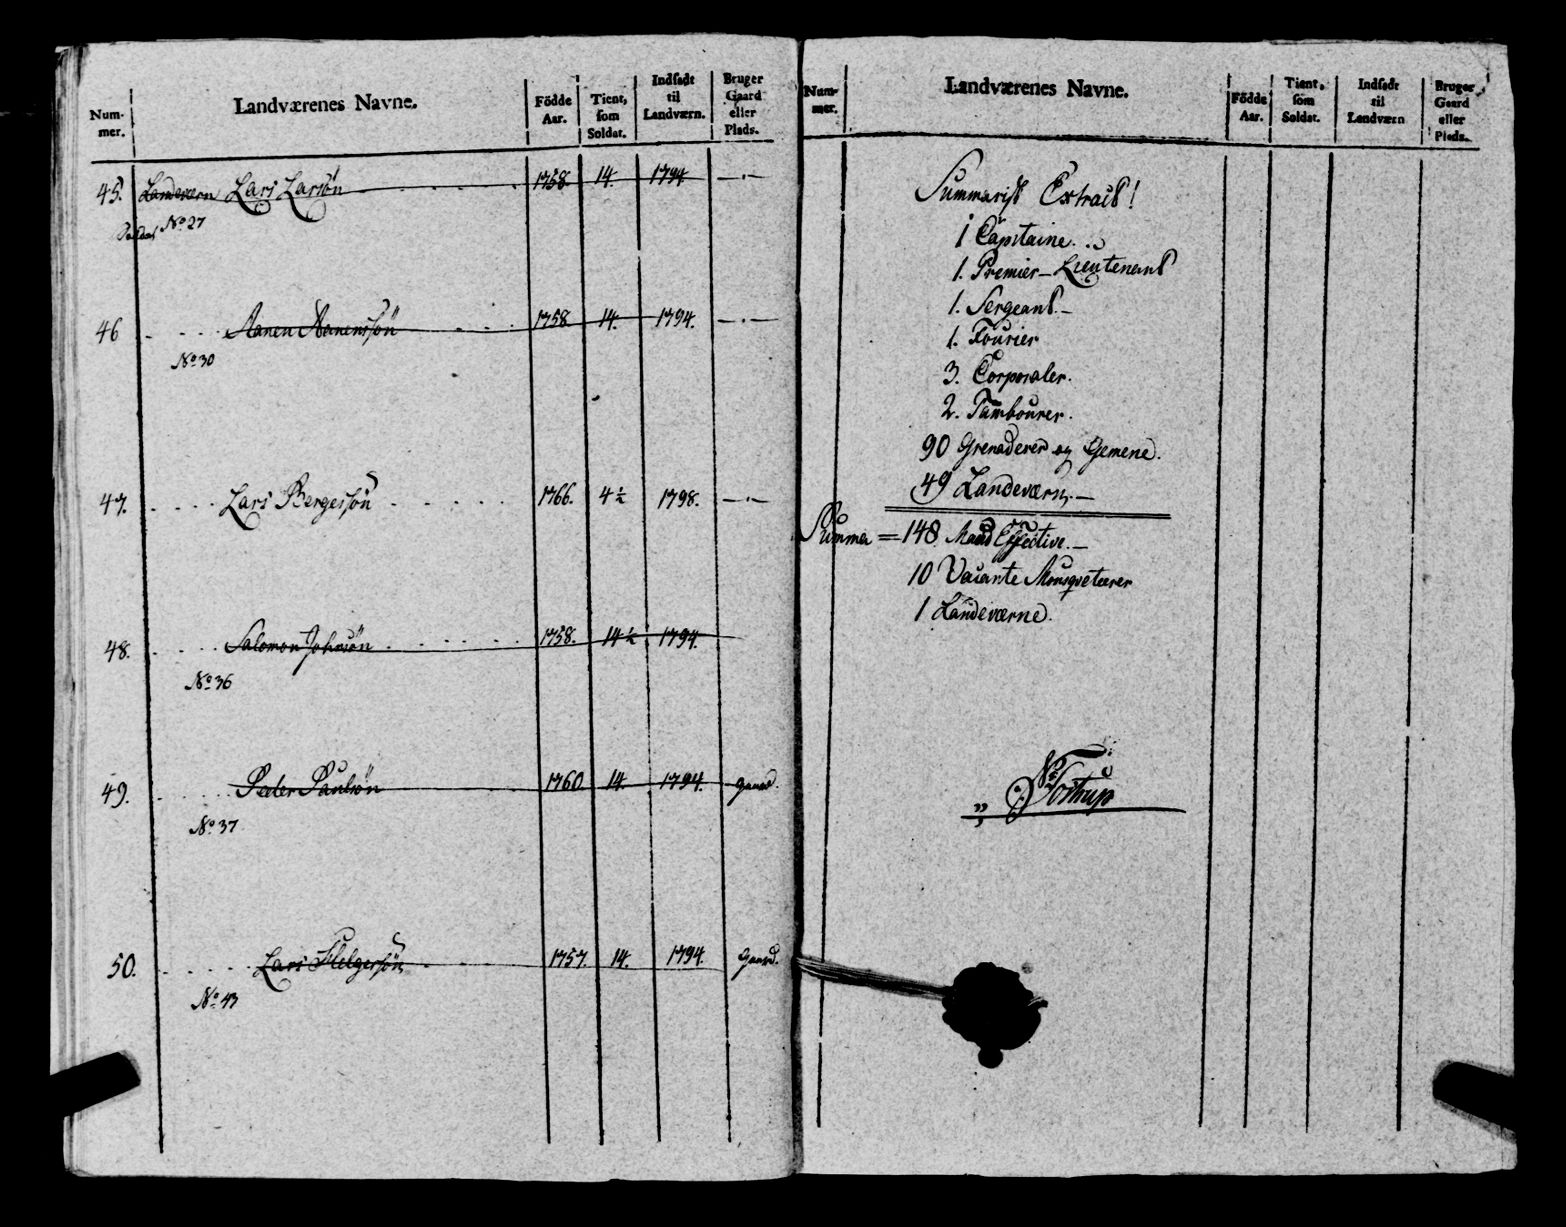 Num-
mer.
Landværenes Navne.
Födde
Aar.
Tient,
som
Soldat.
Indsadt
til
Landværn.
Bruger
Gaard
eller
Plads.
45. Landeværn Lars Larsön 1758. 14. 1794 — . —
No 27
46 Aanen Aanensön 1758 14. 1794. — . —
No 30
47. Lars Bergersön 1766. 4½ 1798. — . —
48. Salomon Johnsön 1758. 14½ 1794.
No 36
49. Peder Paulsön 1760. 14. 1794. Gaard.
No. 37
50. Lars Helgersön 1757. 14. 1794. Gaard.
No 43
Num-
mer.
Landværenes Navne.
Födde
Aar.
Tient,
som
Soldat.
Indsadt
til
Landværn
Bruger
Gaard
eller
Plads.
Summarisk Extract!
1 Capitaine.
1. Premier-Lieutenant
1. Sergeant. —
1. Fourier
3. Corporaler.
2. Tambourer.
90 Grenaderer og Gemene.
49 Landeværn. —
Summa = 148 Mand Effective. —
10 Vacante Mousqveterer
1 Landeværne.